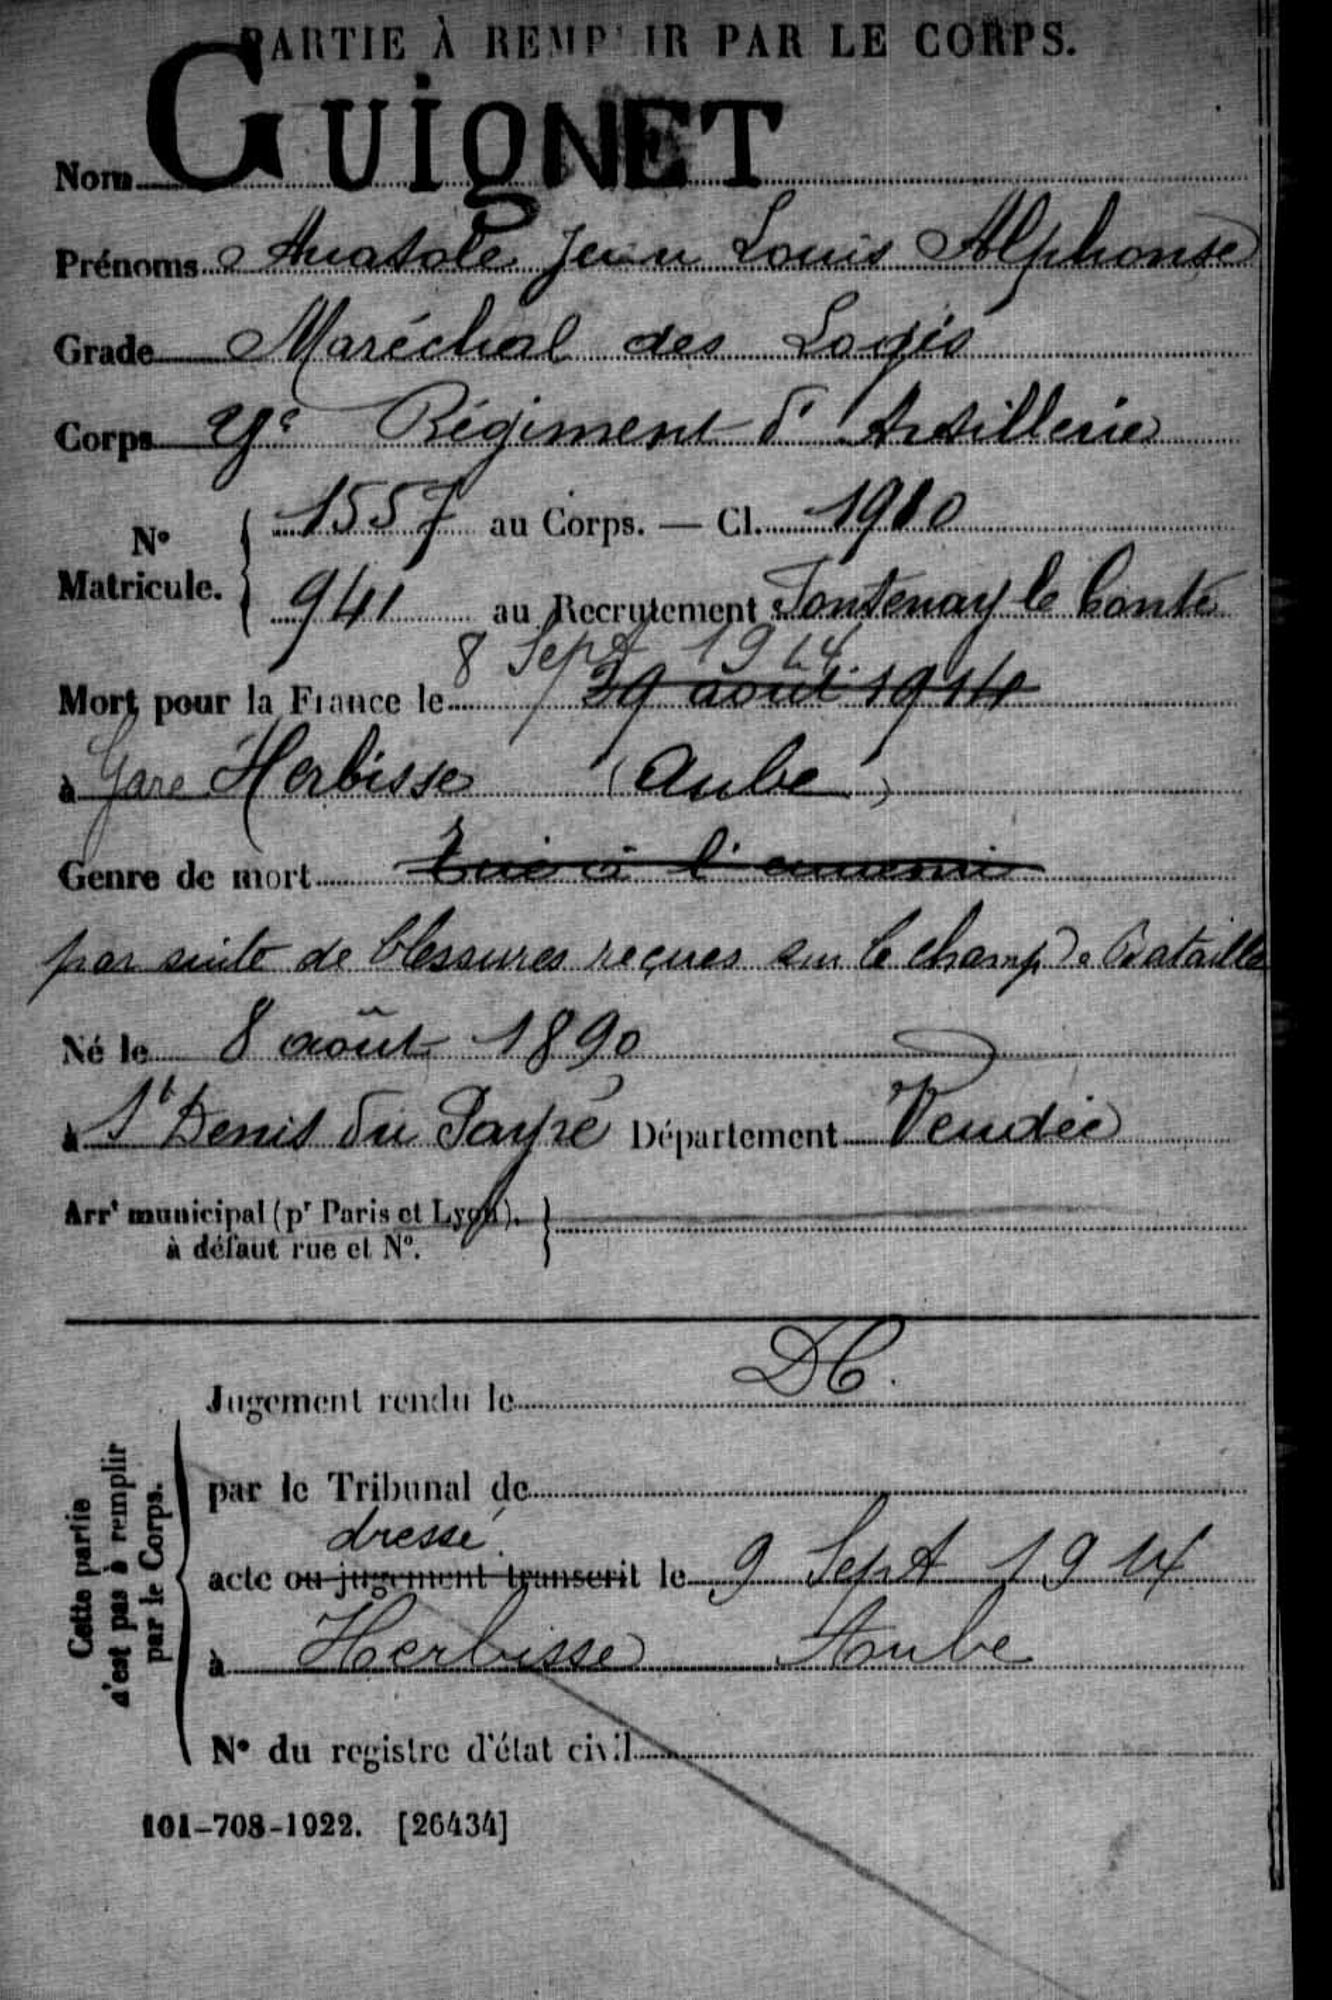 PARTIE À REMPLIR PAR LE CORPS.
Nom GUIGNET
Prénoms Anatole Jean Louis Alphonse
Grade Maréchal des Logis
Corps Régiment d'Artillerie
N° Matricule. 1557 au Corps. — Cl. 1910
941 au Recrutement Fontenay le Conte
8 Sept 1914.
Mort pour la France le 29 août 1914
à Gare Herbisse (Aube)
Genre de mort Tué à l'ennemi
par suite de blessures reçues sur le champ de Bataille
Né le 8 août 1890
à St Denis du Payré Département Vendée
Arrt municipal (pr Paris et Lyon).
à défaut rue et N°.
DC.
Jugement rendu le
par le Tribunal de
dressé
acte ou jugement transcrit le 9 Sept 1914
à Herbisse Aube
N° du registre d'état civil
Cette partie
n'est pas à remplir
par le Corps.
101-708-1922. [26434]